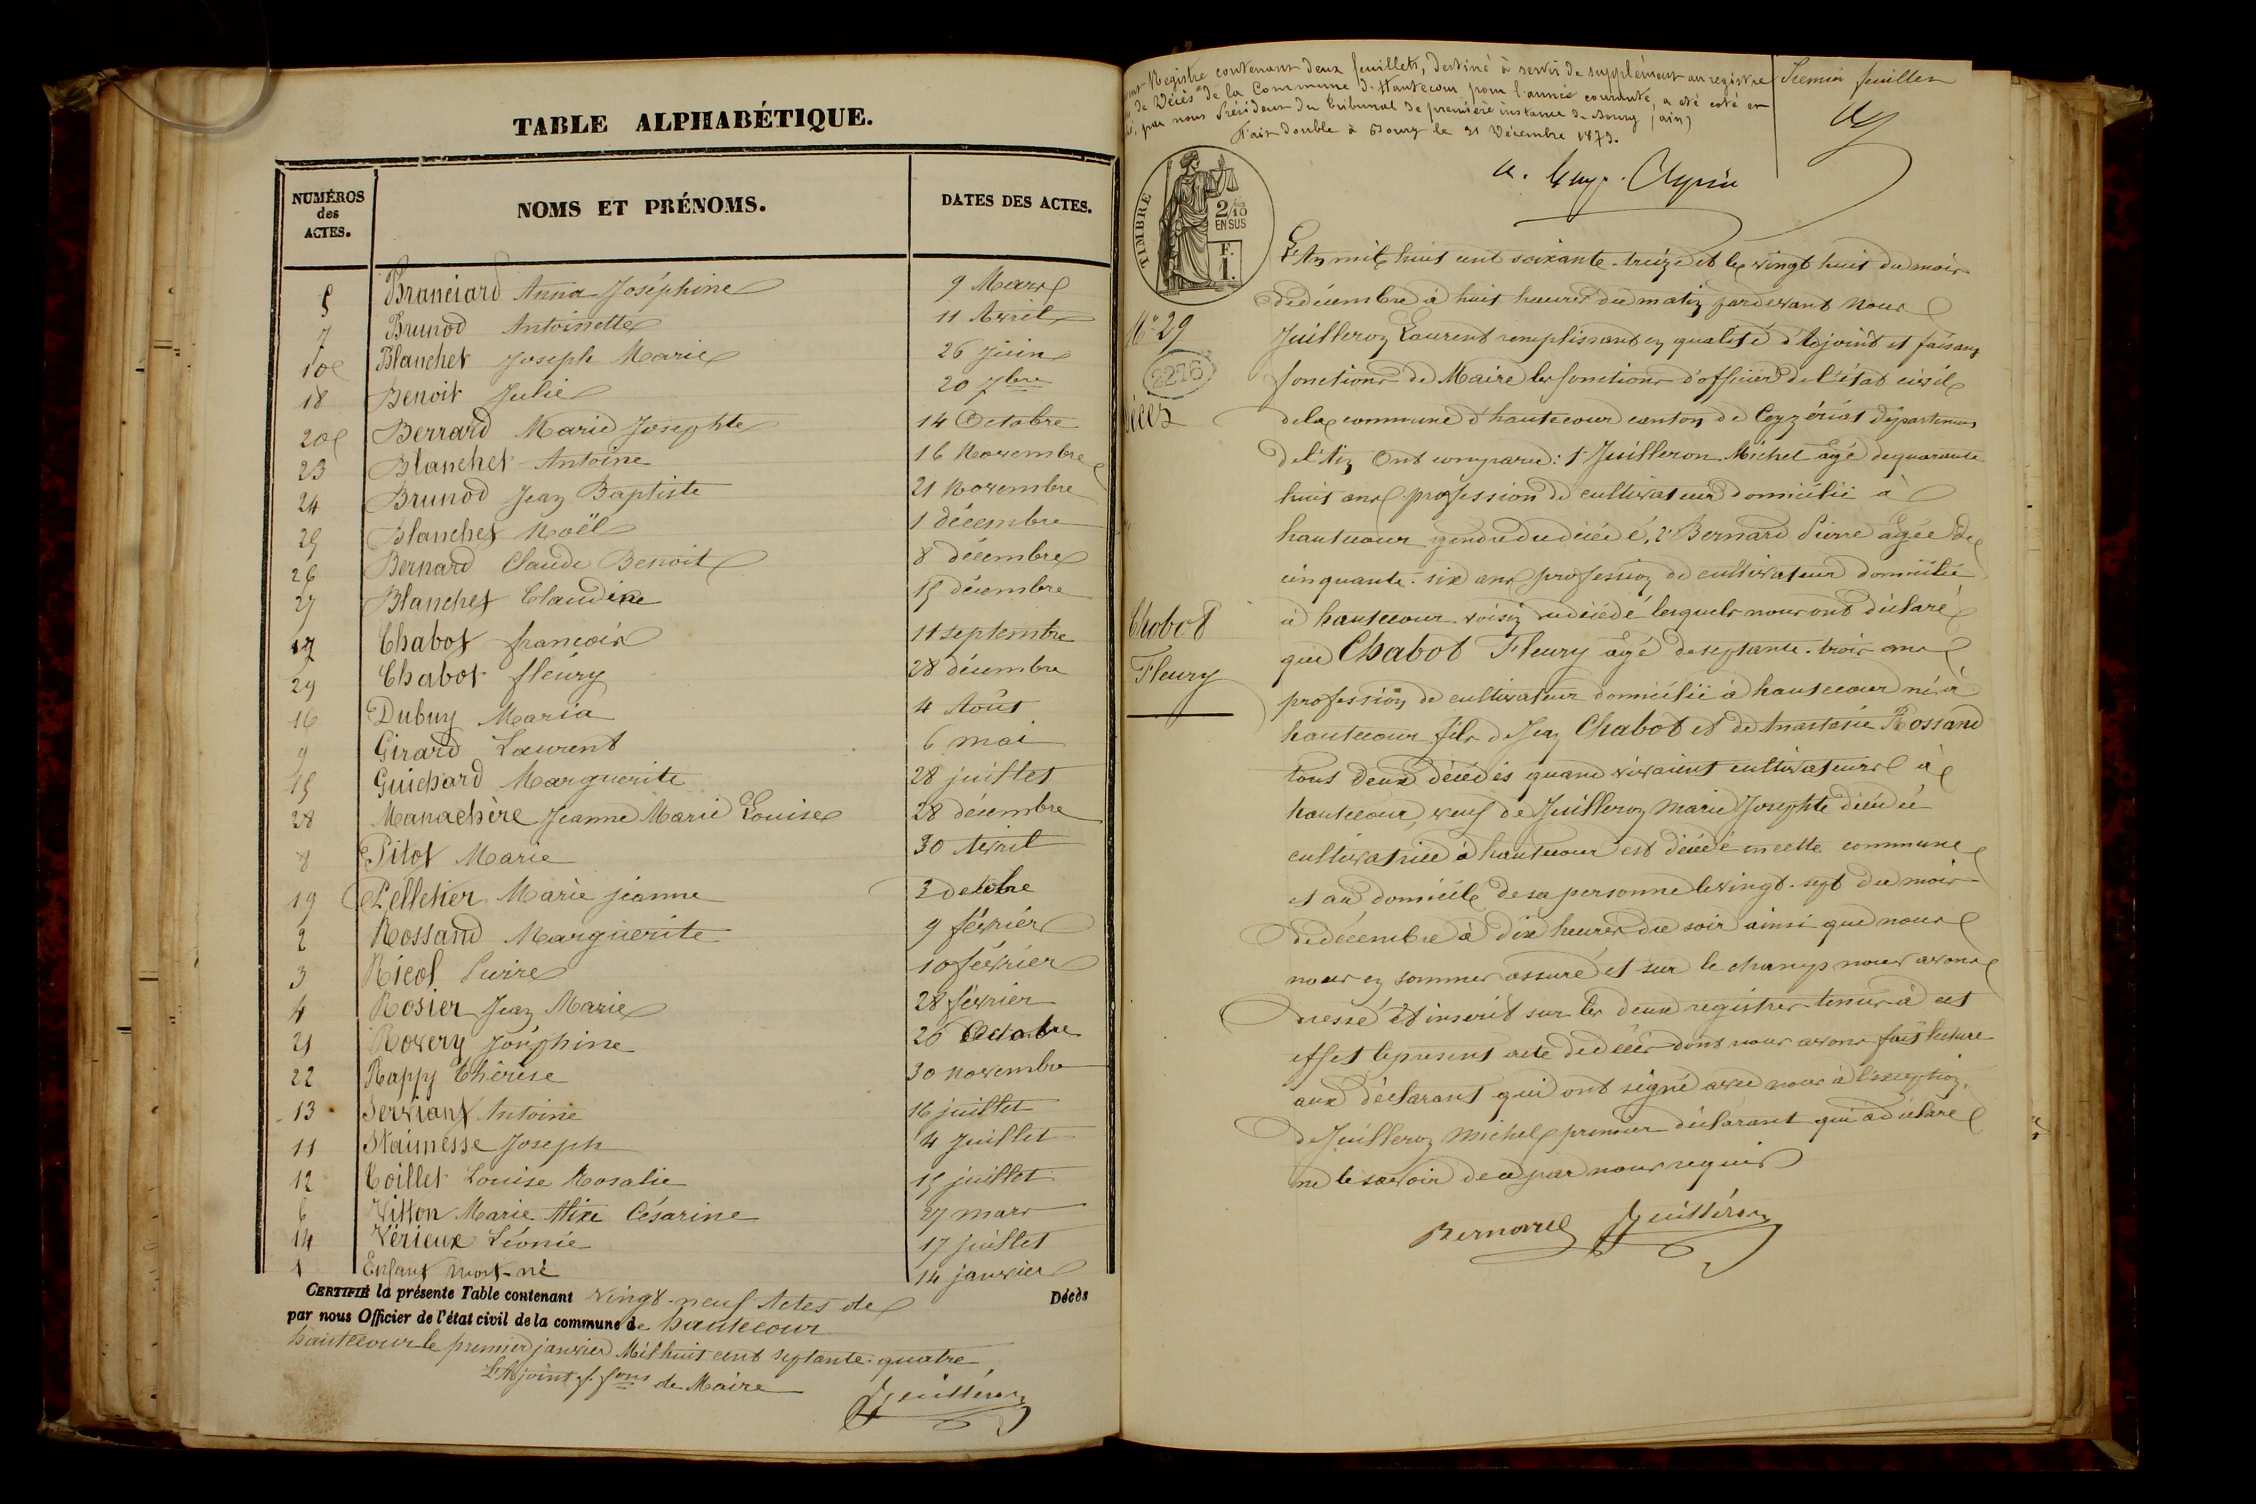 TABLE ALPHABÉTIQUE.
NUMÉROS des ACTES. NOMS ET PRÉNOMS. DATES DES ACTES.
5 Branciard Anna Joséphine 9 Mars
7 Brunod Antoinette 11 Avril
10 Blanchet Joseph Marie 26 Juin
18 Benoit Julie 20 7bre
20 Berrard Marie Josephte 14 Octobre
23 Blanchet Antoine 16 Novembre
24 Brunod Jean Baptiste 21 Novembre
25 Blanchet Noël 1 décembre
26 Bernard Claude Benoit 8 décembre
27 Blanchet Claudine 15 décembre
17 Chabot françois 11 septembre
29 Chabot fleury 28 décembre
16 Dubuy Maria 4 Août
9 Girard Laurent 6 mai
15 Guichard Marguerite 28 juillet
28 Manachère Jeanne Marie Louise 28 décembre
8 Pitot Marie 30 Avril
19 Pelletier Marie jeanne 3 octobre
2 Rossand Marguerite 9 février
3 Nicol Pierre 10 février
4 Rosier Jean Marie 28 février
21 Rovery Joséphine 26 Octobre
22 Rappy Thérèse 30 novembre
13 Serviant Antoine 16 juillet
11 Staimesse Joseph 4 Juillet
12 Toillet Louise Rosalie 15 juillet
6 Vitton Marie Alixe Césarine 27 mars
14 Vérieux Léonie 17 juillet
1 Enfant mort-né 14 janvier
CERTIFIÉ la présente Table contenant vingt-neuf Actes de Décès
par nous Officier de l'état civil de la commune de hautecour
hautecour le premier janvier Mil huit cent septante-quatre
L'Adjoint f. fons de Maire
Juilleron
Registre contenant deux feuillets, destiné à servir de supplément au registre
de Décès de la Commune d'Hautecour pour l'année courante, a été coté et
par nous Président du Tribunal de première instance de Bourg (ain)
Fait double à Bourg le 21 Décembre 1873.
Premier feuillet
TIMBRE
2/10
EN SUS
F.
1.
L'An mil huit cent soixante-treize et le vingt huit du mois
de décembre à huit heures du matin pardevant Nous
No 29
Juilleron Laurent remplissant en qualité d'Adjoint et faisant
2276
fonctions de Maire les fonctions d'officier de l'état civil
décès
de la commune d'hautecour canton de Ceyzériat département
de l'Ain Ont comparu: 1° Juilleron Michel âgé de quarante
huit ans profession de cultivateur domicilié à
hautecour gendre du décédé, 2° Bernard Pierre âgée de
cinquante-six ans profession de cultivateur domicilié
Chobot
à hautecour voisin du décédé lesquels nous ont déclaré
Fleury
que Chabot Fleury âgé de septante-trois ans
profession de cultivateur domicilié à hautecour né à
hautecour fils de Jean Chabot et de Anastasie Rossand
tous deux décédés quand vivaient cultivateurs à
hautecour, veuf de Juilleron Marie Josephte décédée
cultivatrice à hautecour est décédé en cette commune
et au domicile de sa personne le vingt-sept du mois
de décembre à dix heures du soir ainsi que nous
nous en sommes assuré et sur le champ nous avons
dressé et inscrit sur les deux registres tenus à cet
effet le présent acte de décès dont nous avons fait lecture
aux déclarant qui ont signé avec nous à l'exception
de Juilleron Michel premier déclarant qui a déclaré
ne le savoir de ce par nous requis
Bernard Juilleron